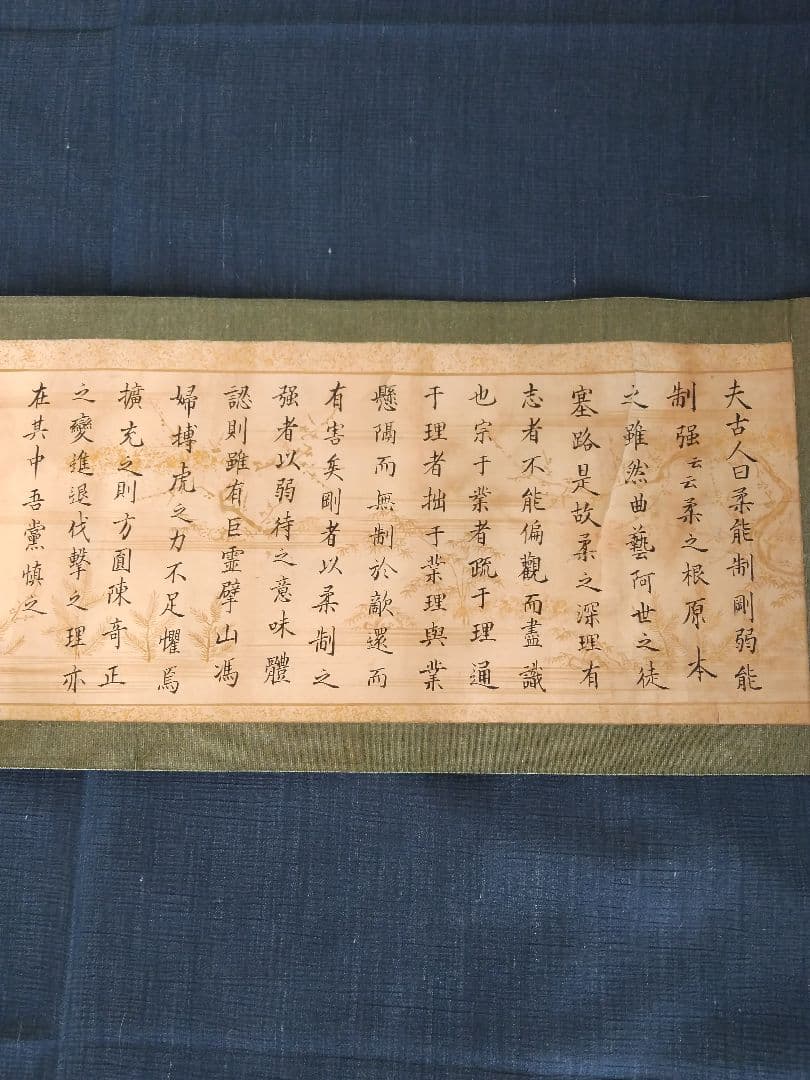 夫古人曰柔能制剛弱能
制强云云柔之根原本
之雖然曲藝阿世之徒
塞路是故柔之深理有
志者不能偏觀而盡識
也宗于業者疏于理通
于理者拙于業理與業
懸隔而無制於敵還而
有害矣剛者以柔制之
强者以弱待之意味體
認則雖有巨霊擘山馮
婦搏虎之力不足懼焉
擴充之則方圓陳竒正
之變進退伐擊之理亦
在其中吾黨慎之